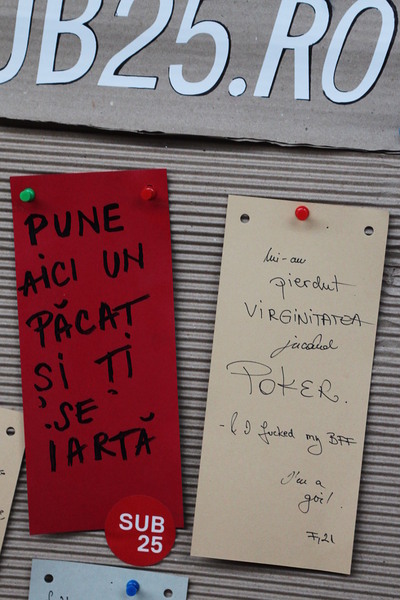 UB25.RO
PUNE
AICI UN
PĂCAT
ȘI ȚI
SE
IARTĂ
SUB
25
Mi-am
pierdut
VIRGINITATEA
jucând
POKER.
- & I fucked my BFF
I'm a
girl!
F, 21